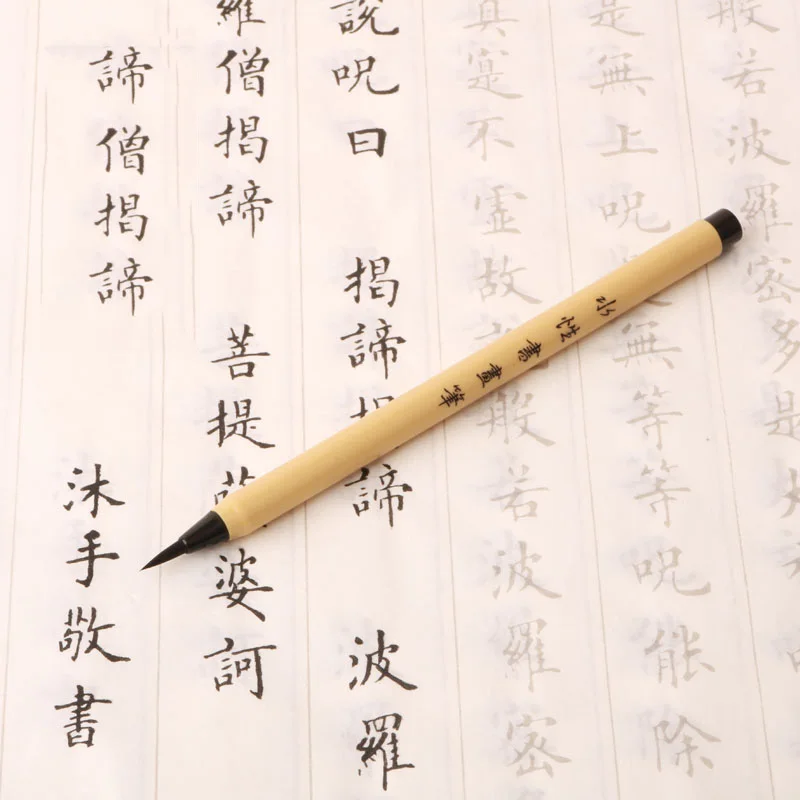 般若波羅密多是大
是無上呪是無等等呪能除
真寔不虛故般若波羅密
說呪曰 揭諦揭諦 波羅
羅僧揭諦 菩提薩婆訶
諦僧揭諦 沐手敬書
水性書畫筆